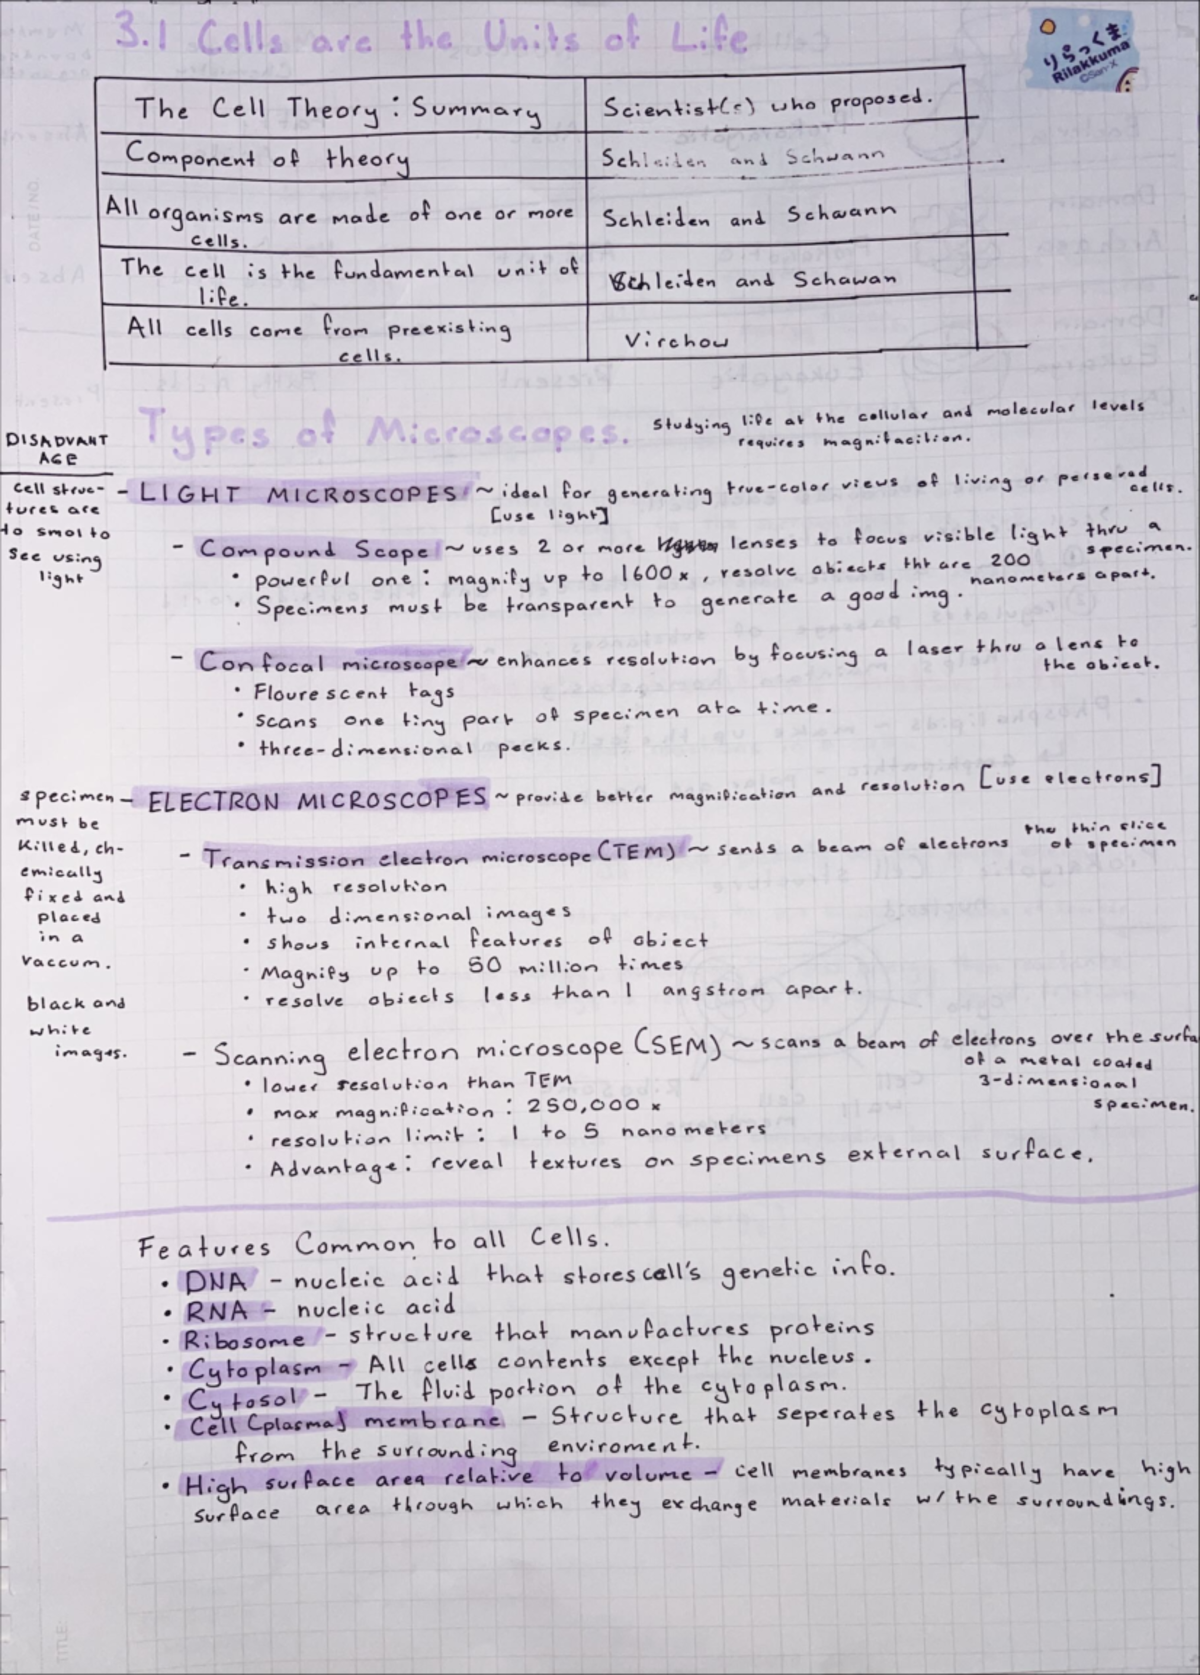 3.1 Cells are the Units of Life
りらっくま
Rilakkuma
©San-X
The Cell Theory: Summary
Scientist(s) who proposed.
Component of theory
Schleiden and Schwann
All organisms are made of one or more
cells.
Schleiden and Schwann
The cell is the fundamental unit of
life.
Schleiden and Schawan
All cells come from preexisting
cells.
Virchow
DATE/NO.
Types of Microscopes.
Studying life at the cellular and molecular levels
requires magnifacition.
DISADVANT
AGE
cell struc-
tures are
to smol to
see using
light
- LIGHT MICROSCOPES ~ ideal for generating true-color views of living or perserved
cells.
[use light]
- Compound Scope ~ uses 2 or more lenses to focus visible light thru a
specimen.
• powerful one: magnify up to 1600x, resolve obiects tht are 200
nanometers apart.
• Specimens must be transparent to generate a good img.
- Confocal microscope ~ enhances resolution by focusing a laser thru a lens to
the obiect.
• Flourescent tags
• scans one tiny part of specimen at a time.
• three-dimensional pecks.
specimen
must be
killed, ch-
emically
fixed and
placed
in a
vaccum.
black and
white
images.
- ELECTRON MICROSCOPES ~ provide better magnification and resolution [use electrons]
- Transmission electron microscope (TEM) ~ sends a beam of electrons thu thin slice
of specimen
• high resolution
• two dimensional images
• shows internal features of obiect
• Magnify up to 50 million times
• resolve obiects less than 1 angstrom apart.
- Scanning electron microscope (SEM) ~ scans a beam of electrons over the surfa
of a metal coated
3-dimensional
specimen.
• lower resolution than TEM
• max magnification: 250,000 x
• resolution limit: 1 to 5 nanometers
• Advantage: reveal textures on specimens external surface.
Features Common to all Cells.
• DNA - nucleic acid that stores cell's genetic info.
• RNA - nucleic acid
• Ribosome - structure that manufactures proteins
• Cytoplasm - All cells contents except the nucleus.
• Cytosol - The fluid portion of the cytoplasm.
• Cell [plasma] membrane - Structure that seperates the cytoplasm
from the surrounding enviroment.
• High surface area relative to volume - cell membranes typically have high
surface area through which they exchange materials w/ the surroundings.
TITLE